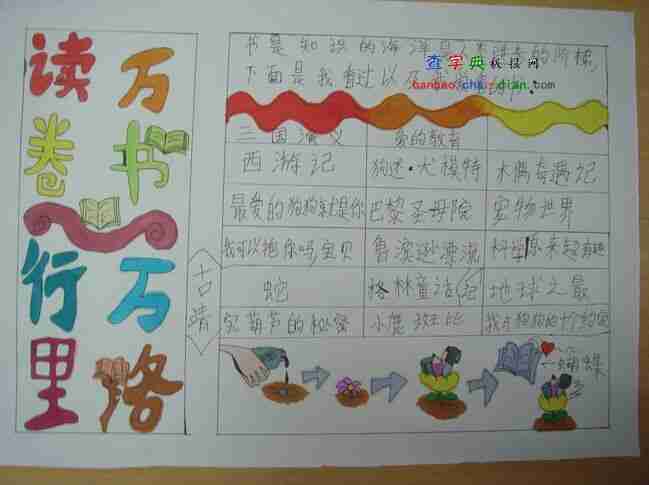 读万
卷书
行万
里路
书是知识的海洋是人类进步的阶梯,
下面是我看过以及
查字典板报网
banbao.chazidian.com
三国演义 爱的教育
西游记 狗迷·犬模特 木偶奇遇记
最爱的狗狗就是你 巴黎圣母院 宠物世界
我可以抱你吗,宝贝 鲁滨逊漂流 科学原来超有趣
蛇 格林童话 地球之最
宝葫芦的秘密 小鹿班比
古靖